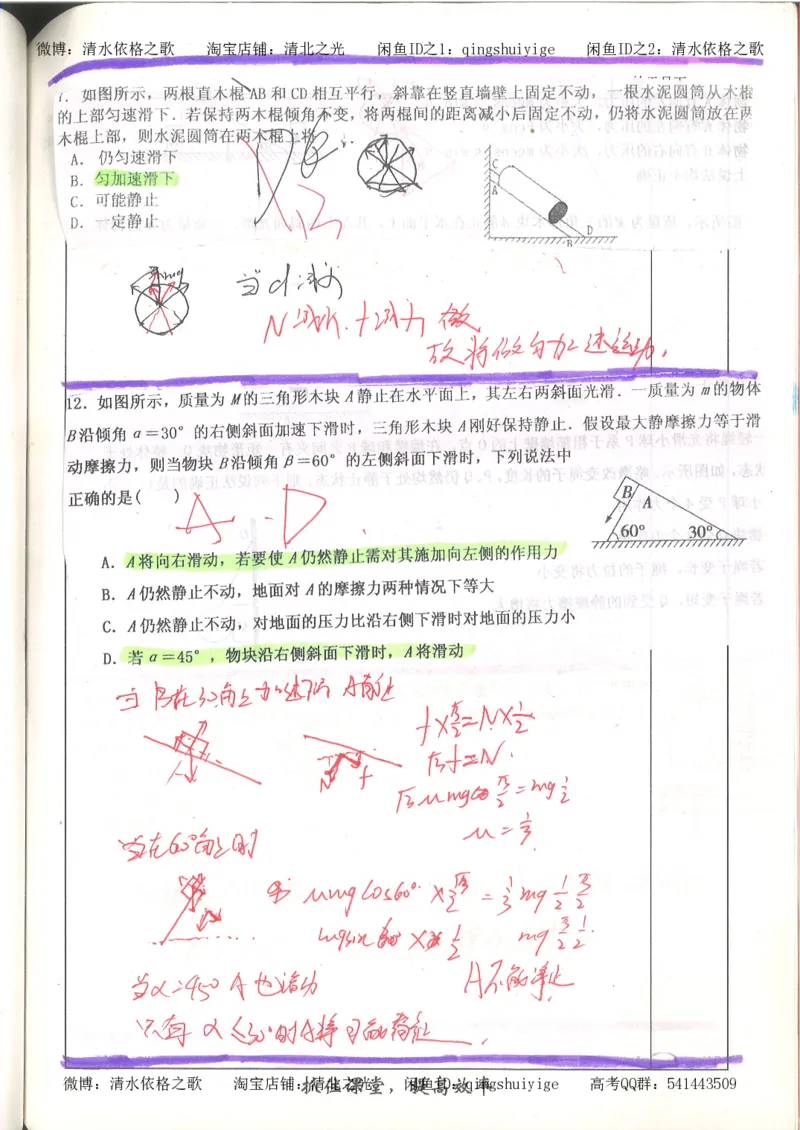 微博：清水依格之歌 淘宝店铺：清北之光 闲鱼ID之1：qingshuiyige 闲鱼ID之2：清水依格之歌
7．如图所示，两根直木棍AB和CD相互平行，斜靠在竖直墙壁上固定不动，一根水泥圆筒从木棍
的上部匀速滑下．若保持两木棍倾角不变，将两棍间的距离减小后固定不动，仍将水泥圆筒放在两
木棍上部，则水泥圆筒在两木棍上将
A．仍匀速滑下
B．匀加速滑下
C．可能静止
D．一定静止
C
A
D
B
mg
当d减小
N减小．f减小
故将做匀加速运动．
12．如图所示，质量为M的三角形木块A静止在水平面上，其左右两斜面光滑．一质量为m的物体
B沿倾角α＝30°的右侧斜面加速下滑时，三角形木块A刚好保持静止．假设最大静摩擦力等于滑
动摩擦力，则当物块B沿倾角β＝60°的左侧斜面下滑时，下列说法中
正确的是( )
A．D
B
A
60°
30°
A．A将向右滑动，若要使A仍然静止需对其施加向左侧的作用力
B．A仍然静止不动，地面对A的摩擦力两种情况下等大
C．A仍然静止不动，对地面的压力比沿右侧下滑时对地面的压力小
D．若α＝45°，物块沿右侧斜面下滑时，A将滑动
f×√3/2=N×1/2
√3f=N．
N
f
μ=1/3
当在60°角上时
μmgcos60°×√3/2=1/3mg 1/2 √3/2
mg √3/2 1/2
当α=45° A也滑动
A不能静止
微博：清水依格之歌 淘宝店铺：清北之光 闲鱼ID：qingshuiyige 高考QQ群：541443509
抓住课堂，提高效率